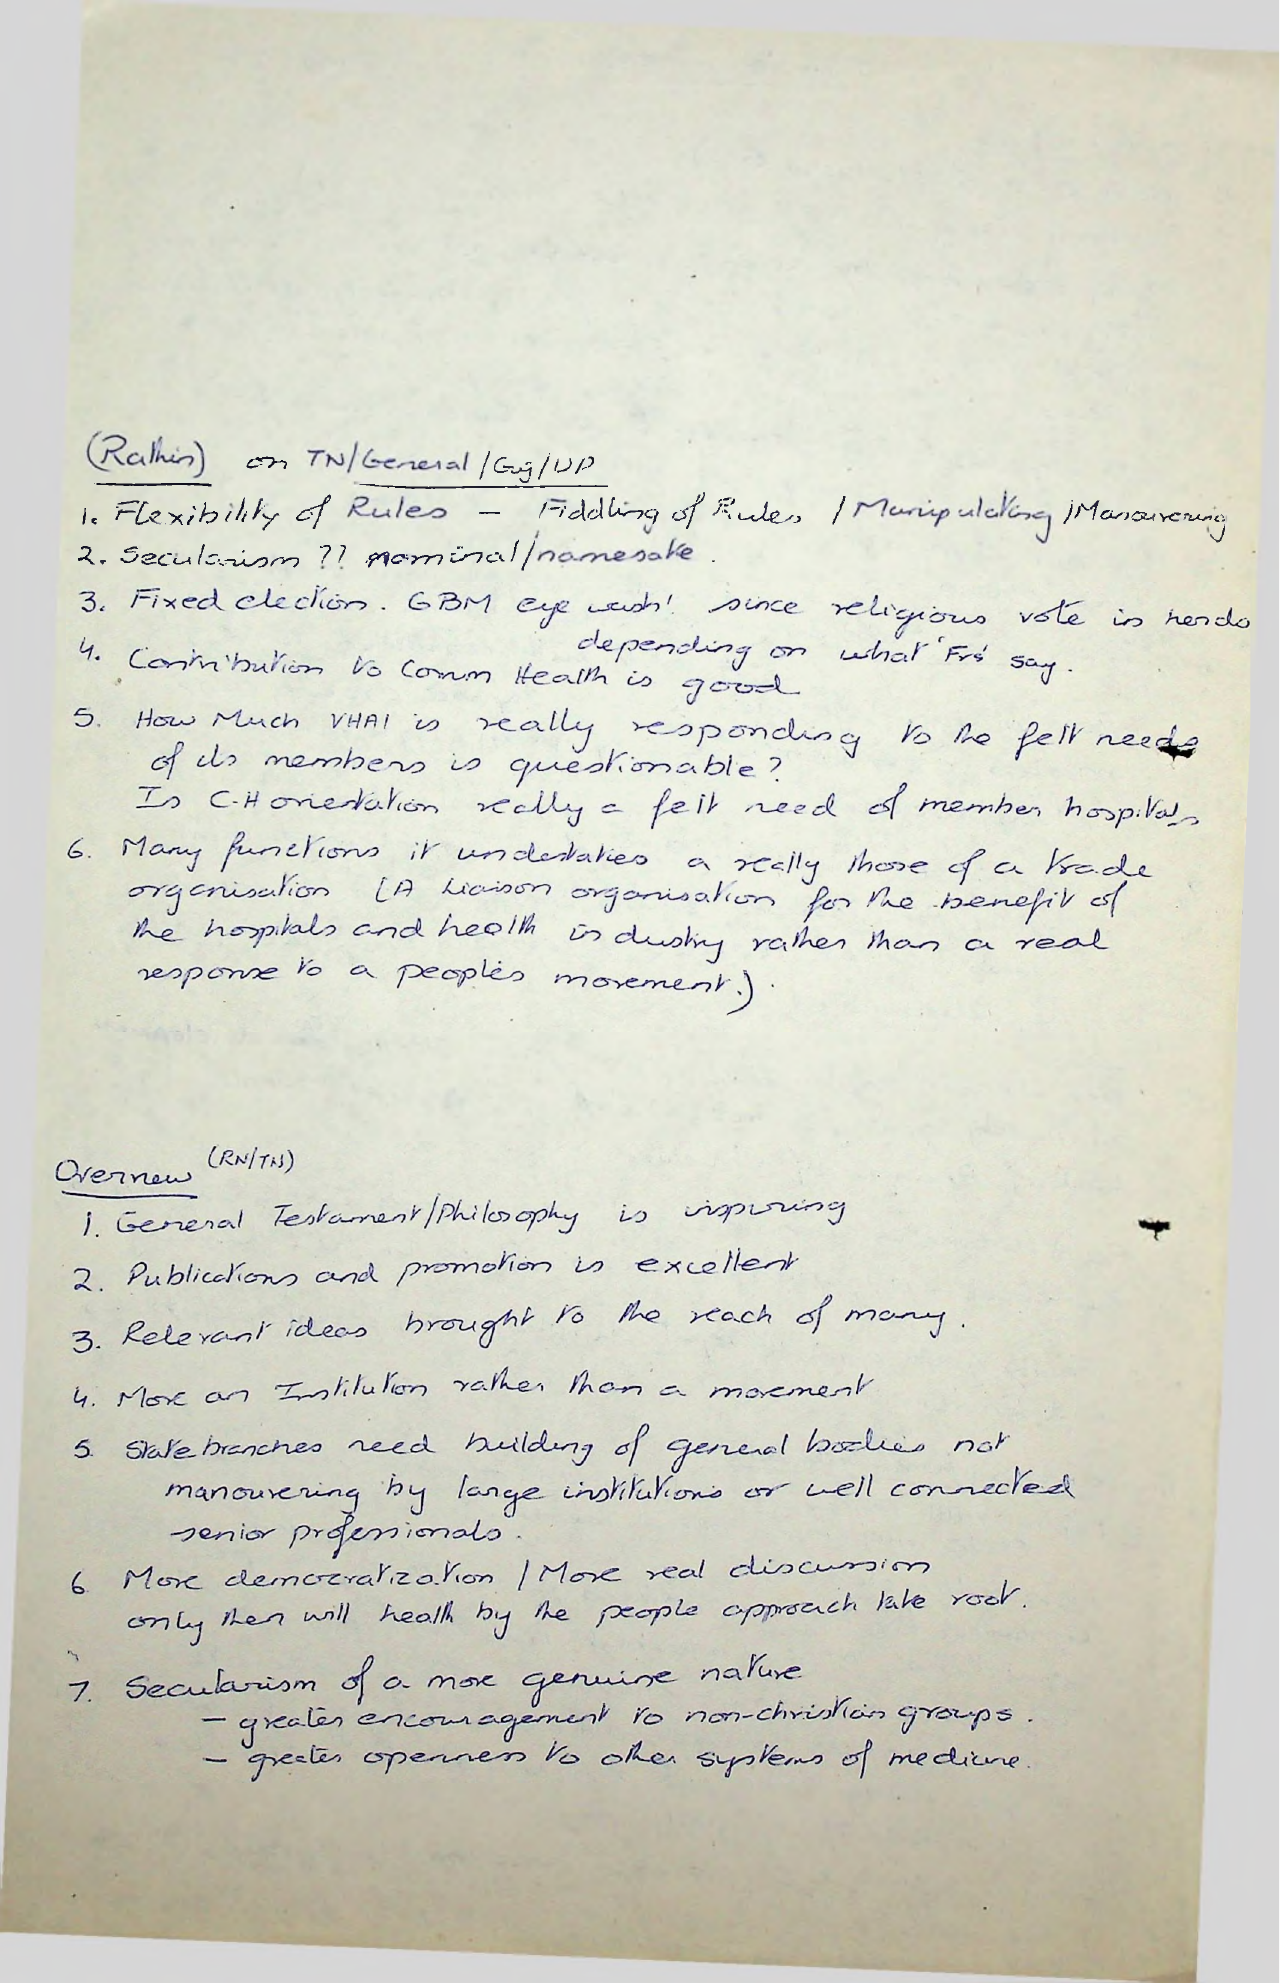 (Rathin) on TN/General/Guj/UP
1. Flexibility of Rules - Fiddling of Rules / Manipulating / Manouvering
2. Secularism ?? nominal/namesake.
3. Fixed election. GBM eye wash! since religious vote in herds
depending on what 'Frs' say.
4. Contribution to Comm Health is good
5. How Much VHAI is really responding to the felt needs
of its members is questionable?
Is C-H orientation really a felt need of member hospitals
6. Many functions it undertakes a really those of a trade
organisation (A Liaison organisation for the benefit of
the hospitals and health industry rather than a real
response to a peoples movement.)
Overview (RN/TN)
1. General Testament/Philosophy is inspiring
2. Publications and promotion is excellent
3. Relevant ideas brought to the reach of many.
4. More an Institution rather than a movement
5. State branches need building of general bodies not
manouvering by large institutions or well connected
senior professionals.
6 More democratization / More real discussion
only then will health by the people approach take root.
7. Secularism of a more genuine nature
- greater encouragement to non-christian groups.
- greater openness to other systems of medicine.